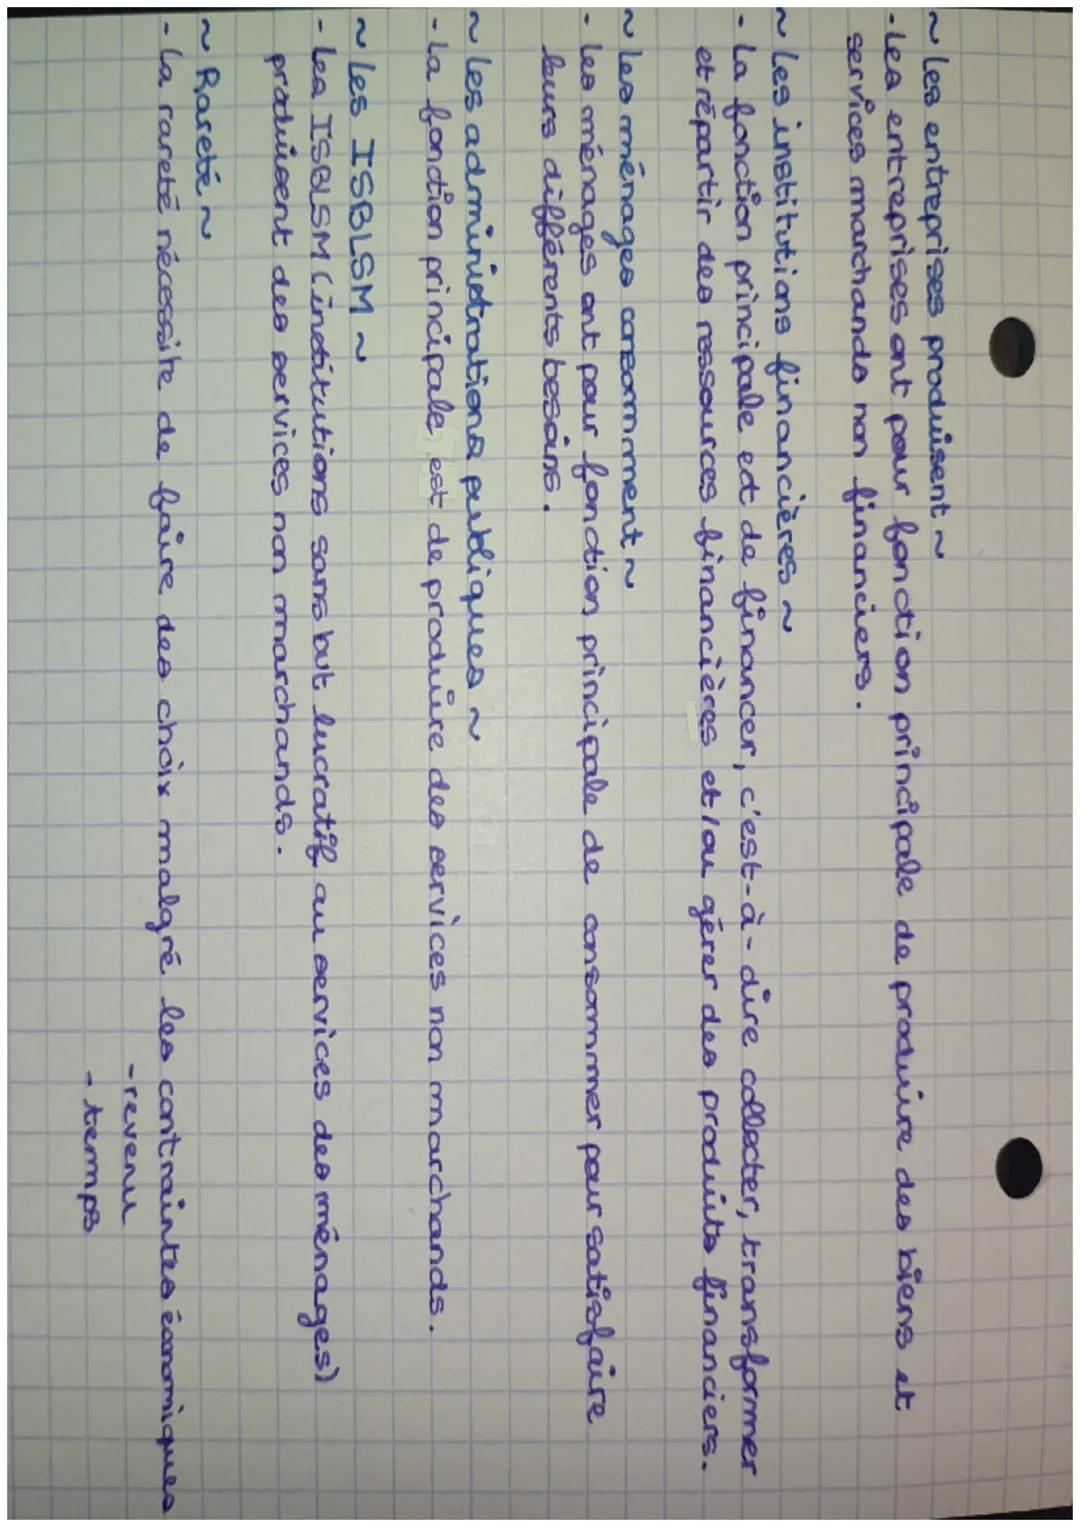 ~ Les entreprises produisent ~
- Les entreprises ont pour fonction principale de produire des biens et
services marchands non financiers.
~ Les institutions financières ~
- La fonction principale est de financer, c'est-à-dire collecter, transformer
et répartir des ressources financières et/ou gérer des produits financiers.
~ Les ménages consomment ~
- Les ménages ont pour fonction principale de consommer pour satisfaire
leurs différents besoins.
~ Les administrations publiques ~
- La fonction principale est de produire des services non marchands.
~ Les ISBLSM ~
- Les ISBLSM (institutions sans but lucratif au services des ménages)
produisent des services non marchands.
~ Rareté ~
- La rareté nécessite de faire des choix malgré les contraintes économiques
- revenu
- temps